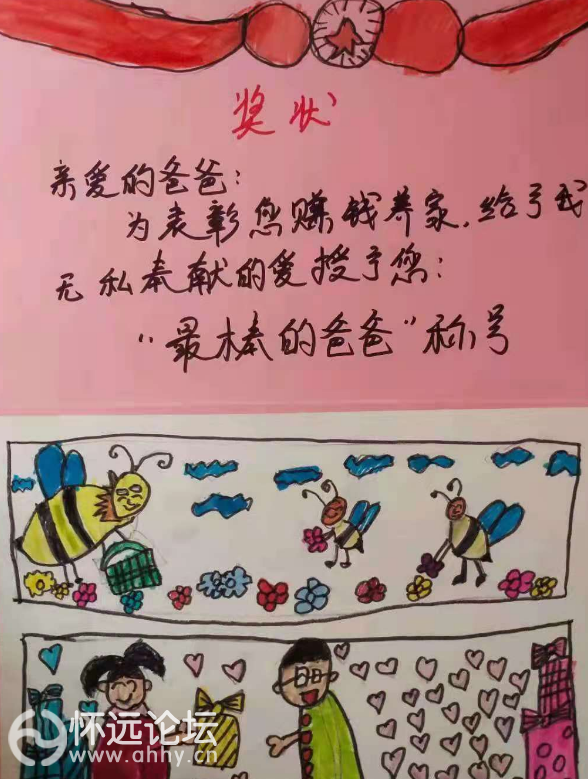 奖状
亲爱的爸爸：
为表彰您赚钱养家，给了我
无私奉献的爱授予您：
“最棒的爸爸”称号
怀远论坛
www.ahhy.cn